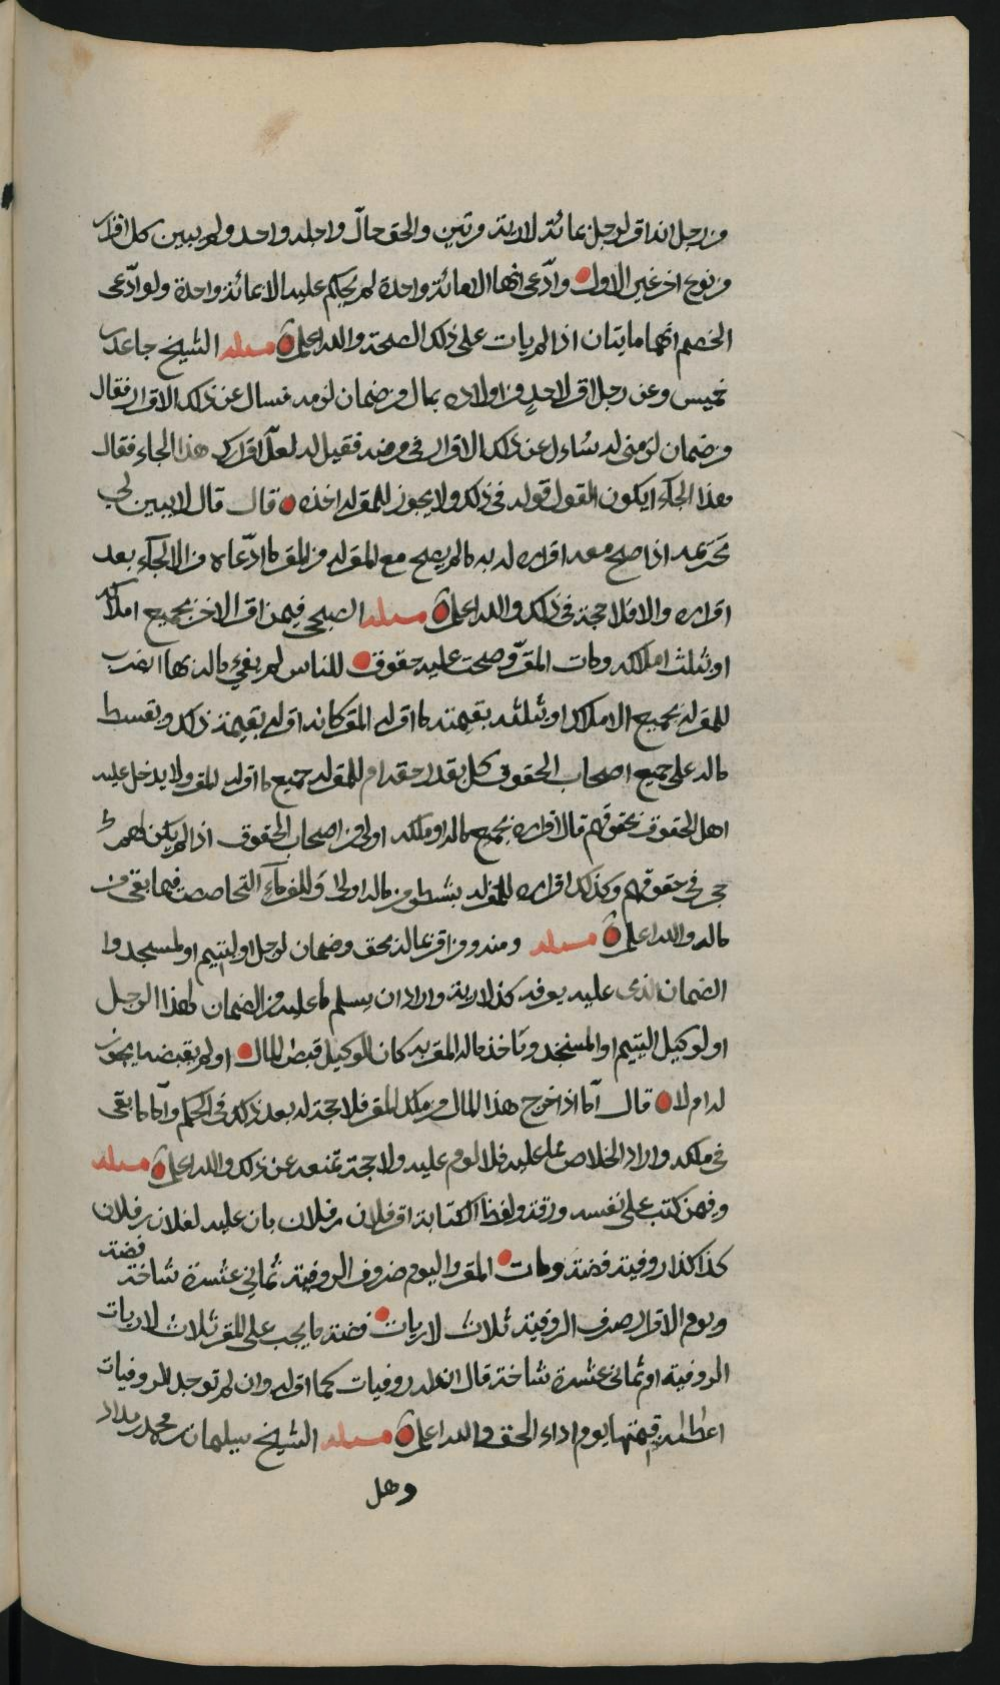 من رجل انه اقر لرجل بمائة لارية مرتين والحق حال واجله واحد ولم يبين كل اقرار
من نوع اخر غير الاول وادعى انها الا مائة واحدة لم يحكم عليه الا بمائة واحدة ولو ادعى
الخصم انهما مايتان اذا لم يات على ذلك الصحة والله اعلم مسئلة الشيخ جاعد بن
خميس وعن رجل اقر لاحد من اولاده بمال من ضمان لزمه فسال عن ذلك الاقرار فقال
من ضمان لزمني له سئل عن ذلك الاقرار في مرضه فقيل له لعل اقرارك هذا الجاء فقال
هذا الجاء ايكون القول قوله في ذلك ولا يجوز للمقر له اخذه قال قال لا يبين لي
تحريمه اذا صح معه اقراره له به ما لم يصح مع المقر له من المقر ما ادعاه من الالجاء بعد
اقراره والا فلا حجة في ذلك والله اعلم مسئلة الصبحي فيمن اقر لاخر بجميع املاكه
او بثلث املاكه ومات المقر وصحت عليه حقوق للناس لم يفي ماله بها ايضرب
للمقر له بجميع الاملاك او بثلثه بقيمته ما اقر له المقر كانه اقر له بقيمة ذلك ويقسط
ماله على جميع اصحاب الحقوق كل بقدر حقه ام للمقر له جميع ما اقر له المقر ولا يدخل عليه
اهل الحقوق بحقوقهم قال اقراره بجميع ماله او ملكه اولى من اصحاب الحقوق اذا لم يكن لهم
حجر في حقوقهم وكذلك اقراره للمقر له بشطر من ماله اولى وللغرماء التحاصص فيما بقي من
ماله والله اعلم مسئلة ومنه ومن اقر بماله بحق وضمان لرجل او ليتيم او لمسجد وا
الضمان الذي عليه يعرفه كذا لارية واراد ان يسلم ما عليه من الضمان لهذا الرجل
او لوكيل اليتيم او المسجد وياخذ ماله المقر به كان الوكيل قبض المال او لم يقبضه ايجوز
له ام لا قال اما اذا خرج هذا المال من ملك المقر فلا حجة له بعد ذلك في الحكم واما ما بقي
في ملكه واراد الخلاص مما عليه فلا لوم عليه ولا حجة تمنعه عن ذلك والله اعلم مسئلة
وفيمن كتب على نفسه ورقة ولفظ الكتابة اقر فلان بن فلان بان عليه لفلان بن فلان
كذا كذا روفية فضة ومات المقر واليوم صروف الروفية ثماني عشرة شاخة فضة
ويوم الاقرار صرف الروفية ثلاث لاريات فضة ما يجب على المقر ثلاث لاريات
الروفية ام ثماني عشرة شاخة قال ان له روفيات كما اقر له وان لم توجد الروفيات
اعطاه قيمتها يوم اداء الحق والله اعلم مسئلة الشيخ سليمان بن محمد بن مداد
وهل